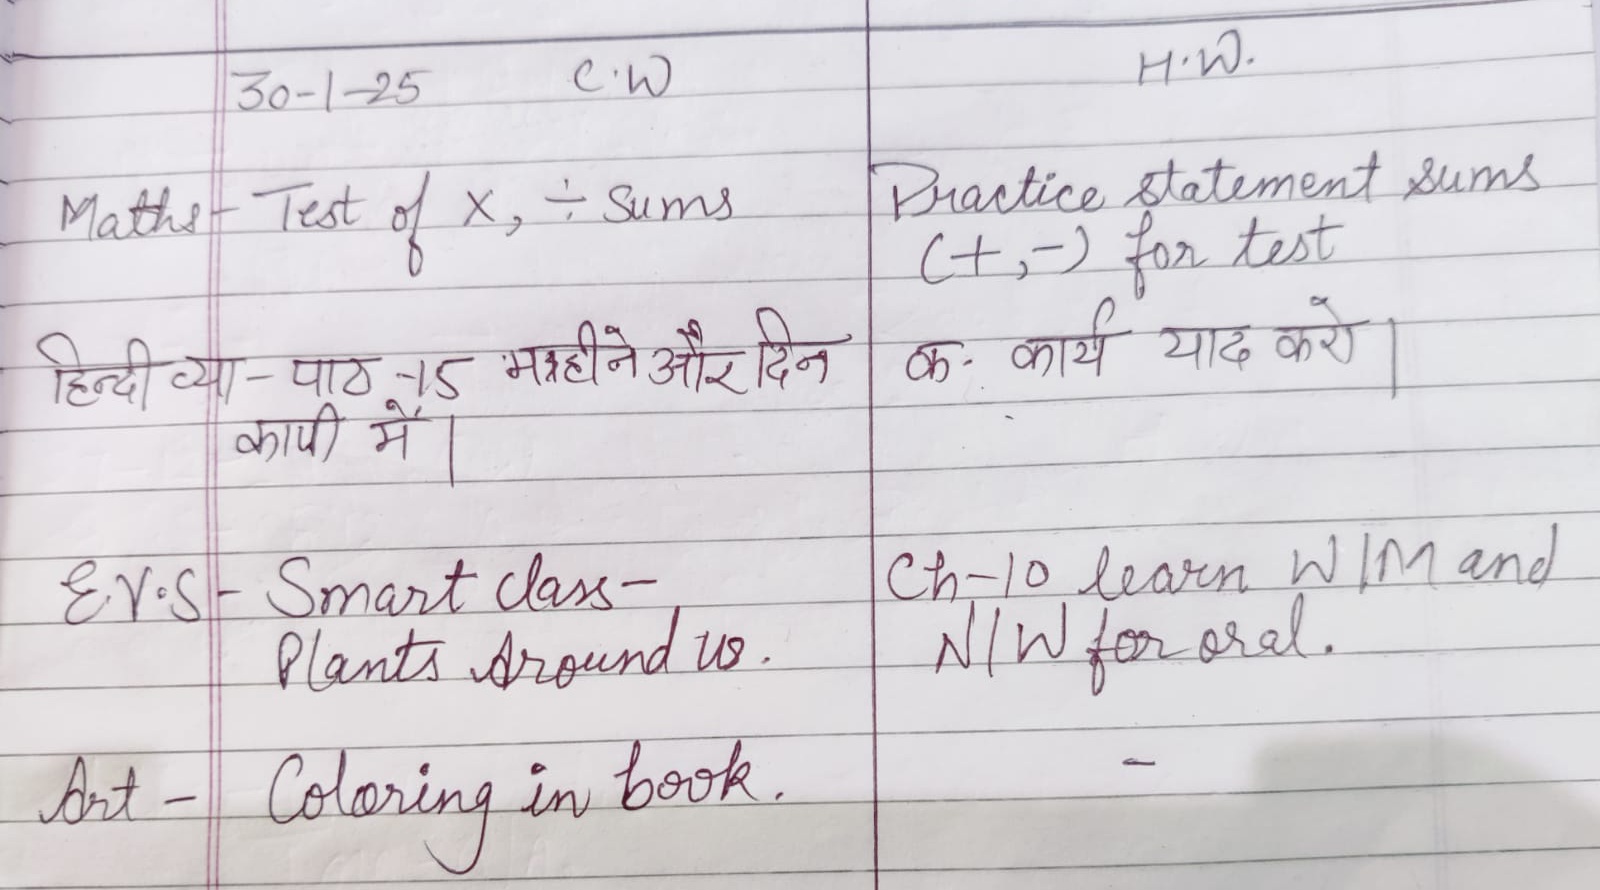 30-1-25 C.W H.W.
Maths - Test of x, ÷ Sums Practice statement sums
(+,-) for test
हिन्दी व्या - पाठ -15 महीने और दिन क. कार्य याद करो।
कापी में।
E.V.S - Smart class - Ch-10 learn W/M and
Plants Around us. N/W for oral.
Art - Coloring in book. -